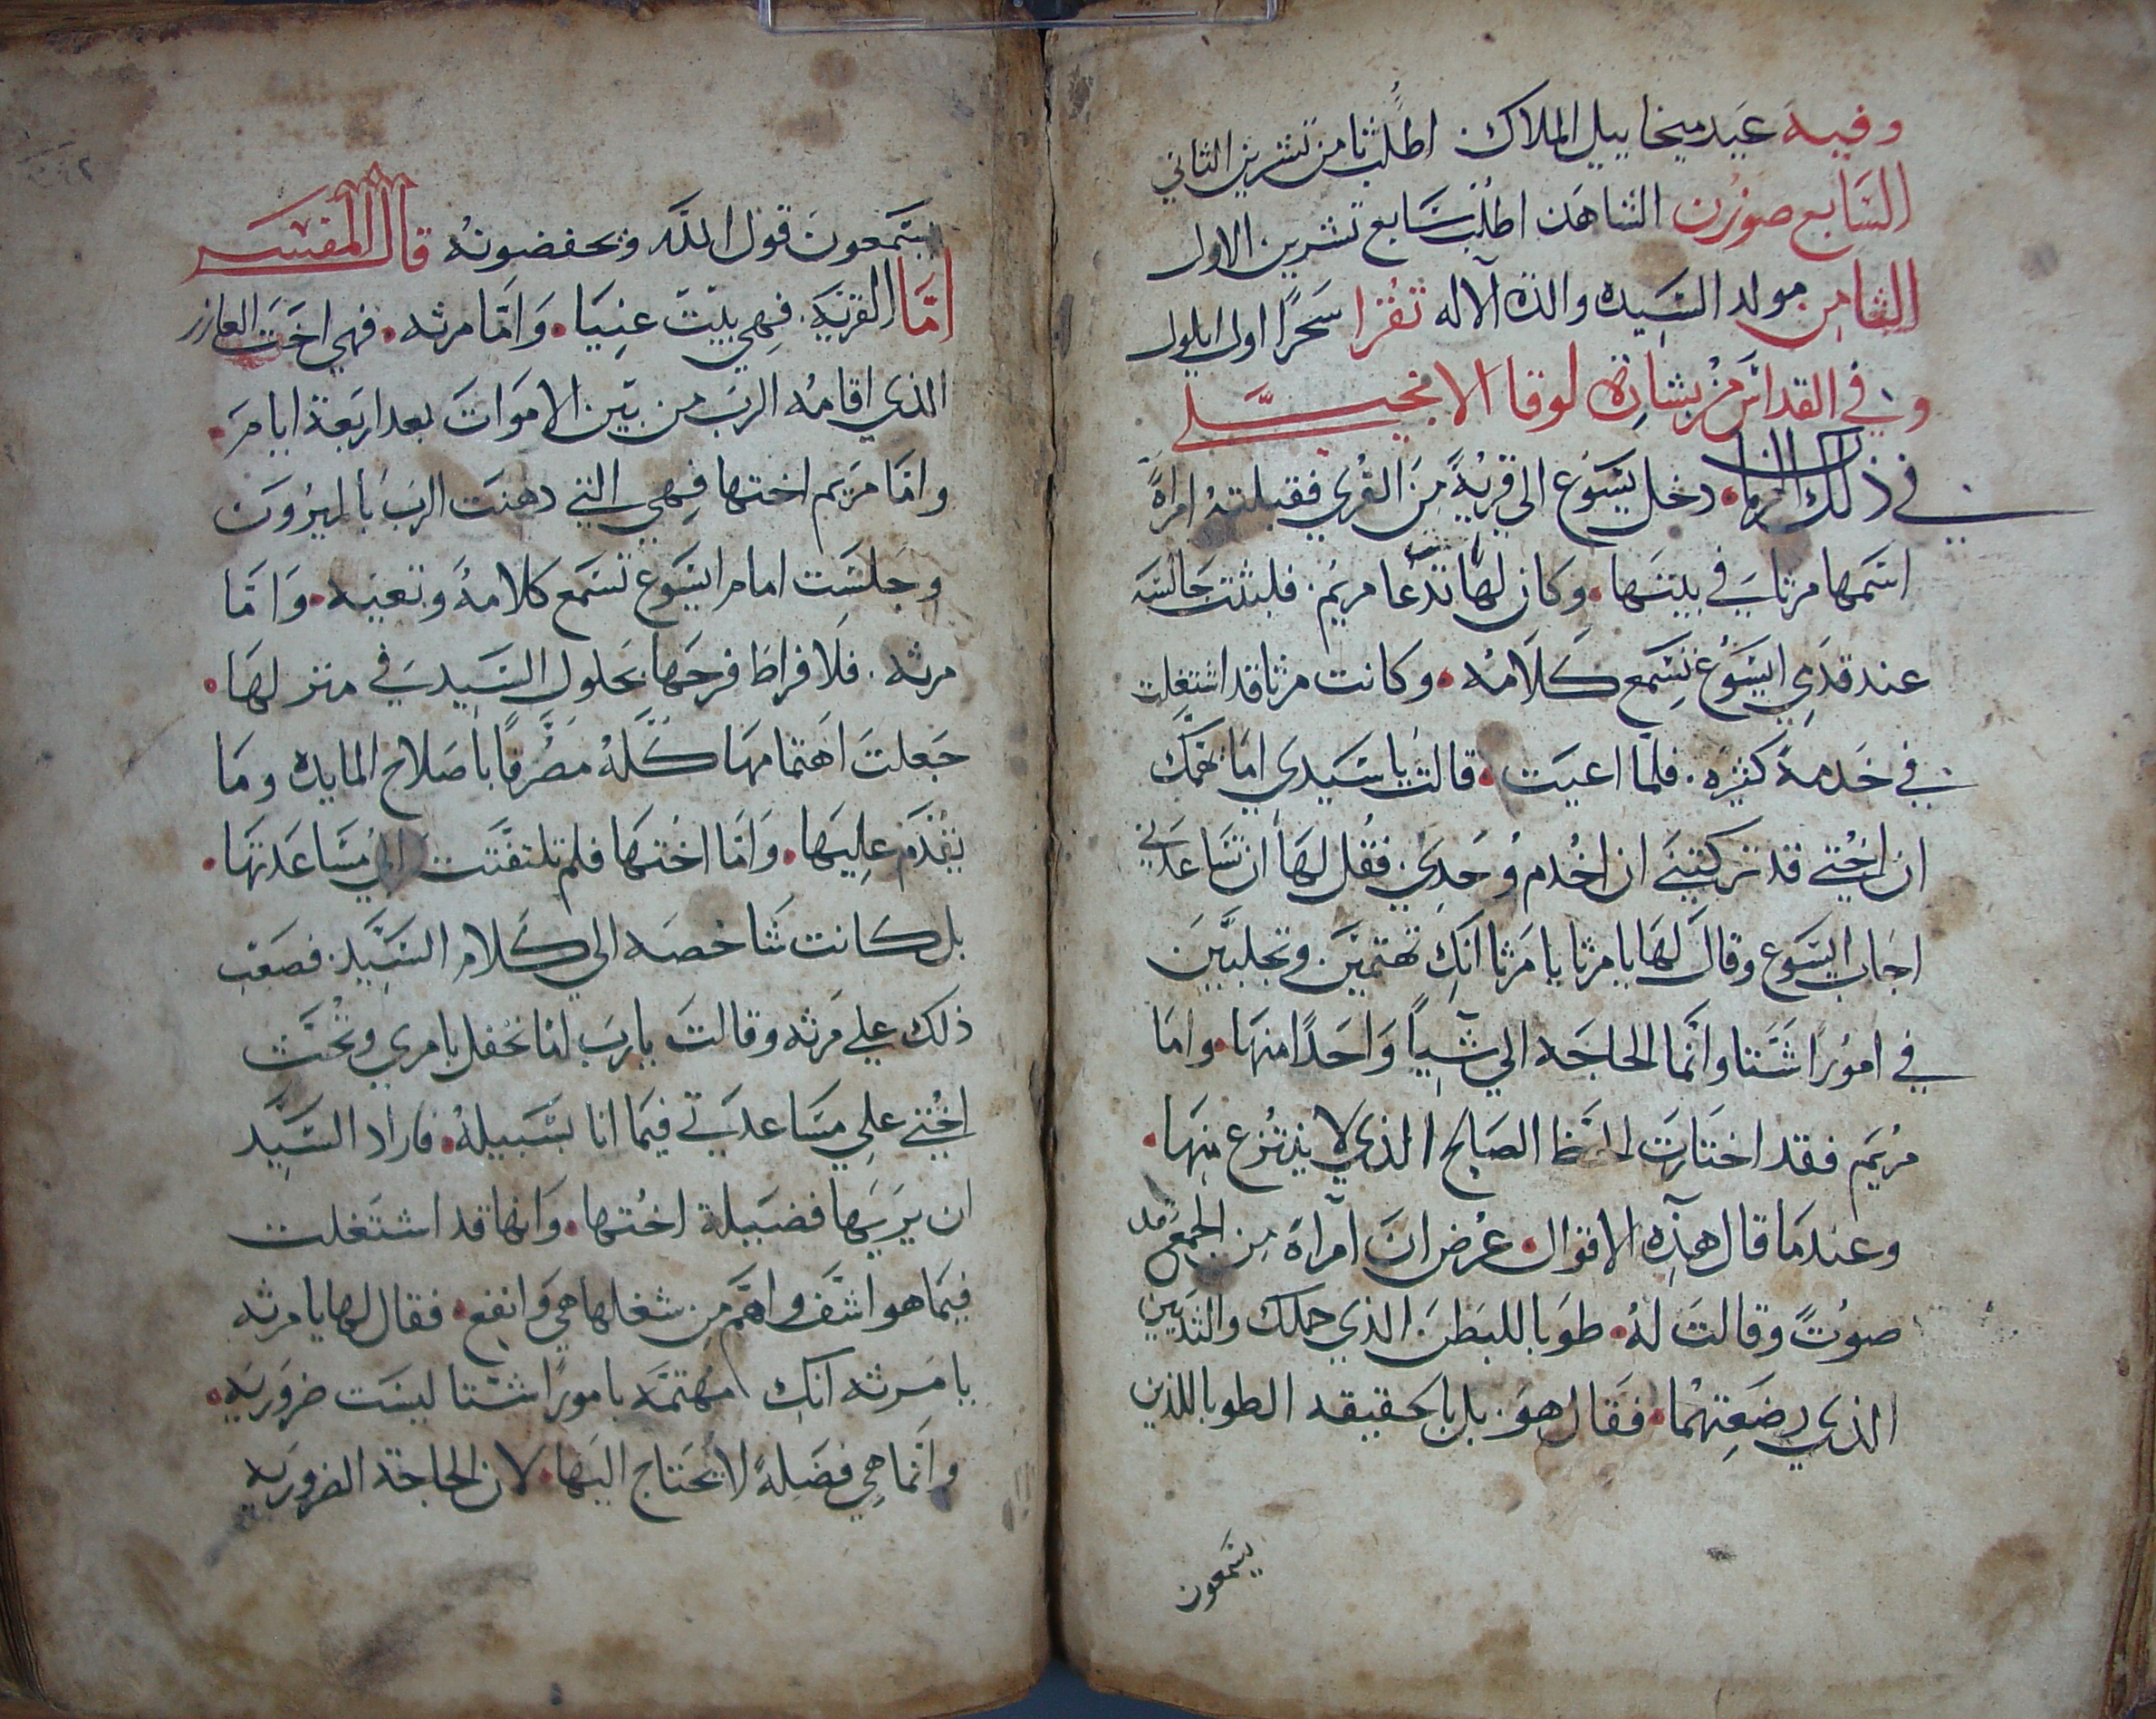 وفيه عيد ميخاييل الملاك. اطلب ثامن تشرين الثاني
السابع صوزن الشاهد اطلب سابع تشرين الاول
الثامن مولد السيده والدة الاله تقرا سحرًا اول ايلول
وفي القداس من بشارة لوقا الانجيلي
في ذلك الزمان دخل يسوع الى قريةً من القري فقبلته امراةً
اسمها مرثا في بيتها. وكان لها تدعا مريم. فلبثت جالسه
عند قدمي ايسوع تسمع كلامه. وكانت مرثا قد اشتغلت
في خدمة كثيره. فلما اعيت. قالت يا سيدي اما يهمك
ان اختي قد تركتني ان اخدم وحدي. فقل لها ان تساعدني
اجاب ايسوع وقال لها يا مرثا يا مرثا انك تهتمين. وتجلبين
في امورًا شتا وانما الحاجه الي شياً واحدًا منها. واما
مريم فقد اختارت الحظ الصالح الذي لا ينتزع منها.
وعندما قال هذه الاقوال. عرض ان امراة من الجمع
صوتً وقالت له. طوبا للبطن الذي حملك والثديين
الذي رضعتهما. فقال هو. بل بالحقيقه الطوبا للذين
يسمعون
يسمعون قول الله ويحفضونه قال المفسر
اما القرية. فهي بيت عنيا. واما مرثه. فهي اخت العازر
الذي اقامه الرب من بين الاموات بعد اربعة ايام.
واما مريم اختها فهي التي دهنت الرب بالميرون
وجلست امام ايسوع تسمع كلامه وتعيه. واما
مرثه. فلافراط فرحها بحلول السيد في منزلها.
جعلت اهتمامها كله مصرفًا باصلاح المايده وما
يقدم عليها. واما اختها فلم تلتفت الى مساعدتها.
بل كانت شاخصه الي كلام السيد. فصعب
ذلك علي مرثه وقالت يارب اما تحفل بامري وتحث
اختي علي مساعدتي فيما انا بسبيله. فاراد السيد
ان يريها فضيلة اختها. وانها قد اشتغلت
فيما هو اشف واهم من شغلها هي وانفع. فقال لها يا مرثه
يا مرثه انك مهتمه بامورًا شتا ليست ضروريه.
وانما هي فضلةً لا يحتاج اليها. لان الحاجة الضروريه